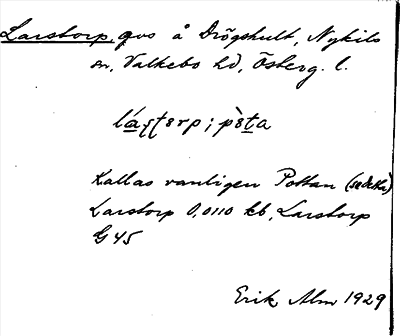 Larstorp, gvs å Drögshult, Nykils
sn, Valkebo hd, Österg. l.
lá̱ʂʈɘrp; pò̱ta
Kallas vanligen Pottan (se detta)
Larstorp 0,0110 kb, Larstorp
G 45
Erik Alm 1929